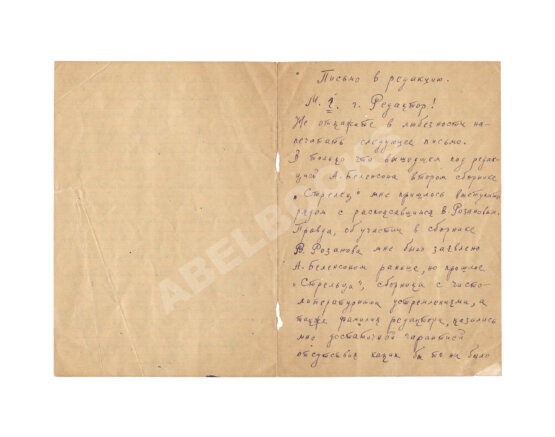 Письмо в редакцию.
М. г. г. Редактор!
Не откажите в любезности на-
печатать следующее письмо.
В только что вышедшем под редак-
цией А. Беленсона втором сборнике
„Стрелец" мне пришлось выступить
рядом с В. Розановым.
Правда, об участии в сборнике
В. Розанова мне было заявлено
А. Беленсоном раньше, но прошлое
„Стрельца", сборника с чисто-
литературными устремлениями, а
также фамилия редактора, казались
мне достаточной гарантией
отсутствия каких бы то ни было
ABELBOOKS